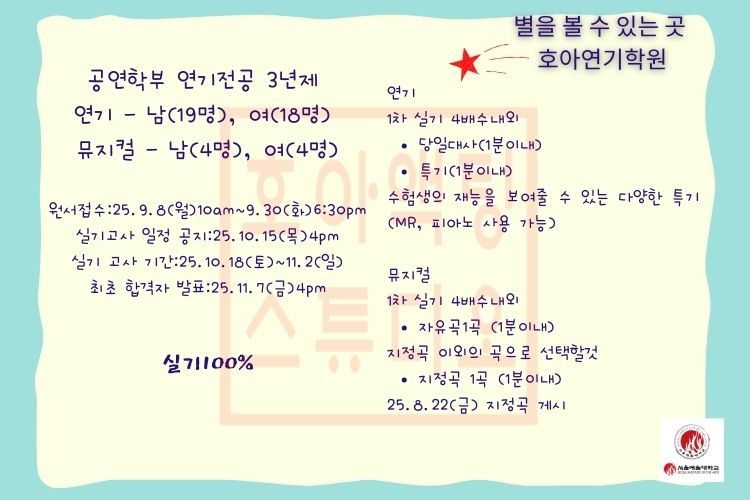 별을 볼 수 있는 곳
호아연기학원
공연학부 연기전공 3년제
연기 - 남(19명), 여(18명)
뮤지컬 - 남(4명), 여(4명)
원서접수:25.9.8(월)10am~9.30(화)6:30pm
실기고사 일정 공지:25.10.15(목)4pm
실기 고사 기간:25.10.18(토)~11.2(일)
최초 합격자 발표:25.11.7(금)4pm
실기100%
연기
1차 실기 4배수내외
• 당일대사(1분이내)
• 특기(1분이내)
수험생의 재능을 보여줄 수 있는 다양한 특기
(MR, 피아노 사용 가능)
뮤지컬
1차 실기 4배수내외
• 자유곡1곡 (1분이내)
지정곡 이외의 곡으로 선택할것
• 지정곡 1곡 (1분이내)
25.8.22(금) 지정곡 게시
호아액팅
스튜디오
서울예술대학교
SEOUL INSTITUTE OF THE ARTS